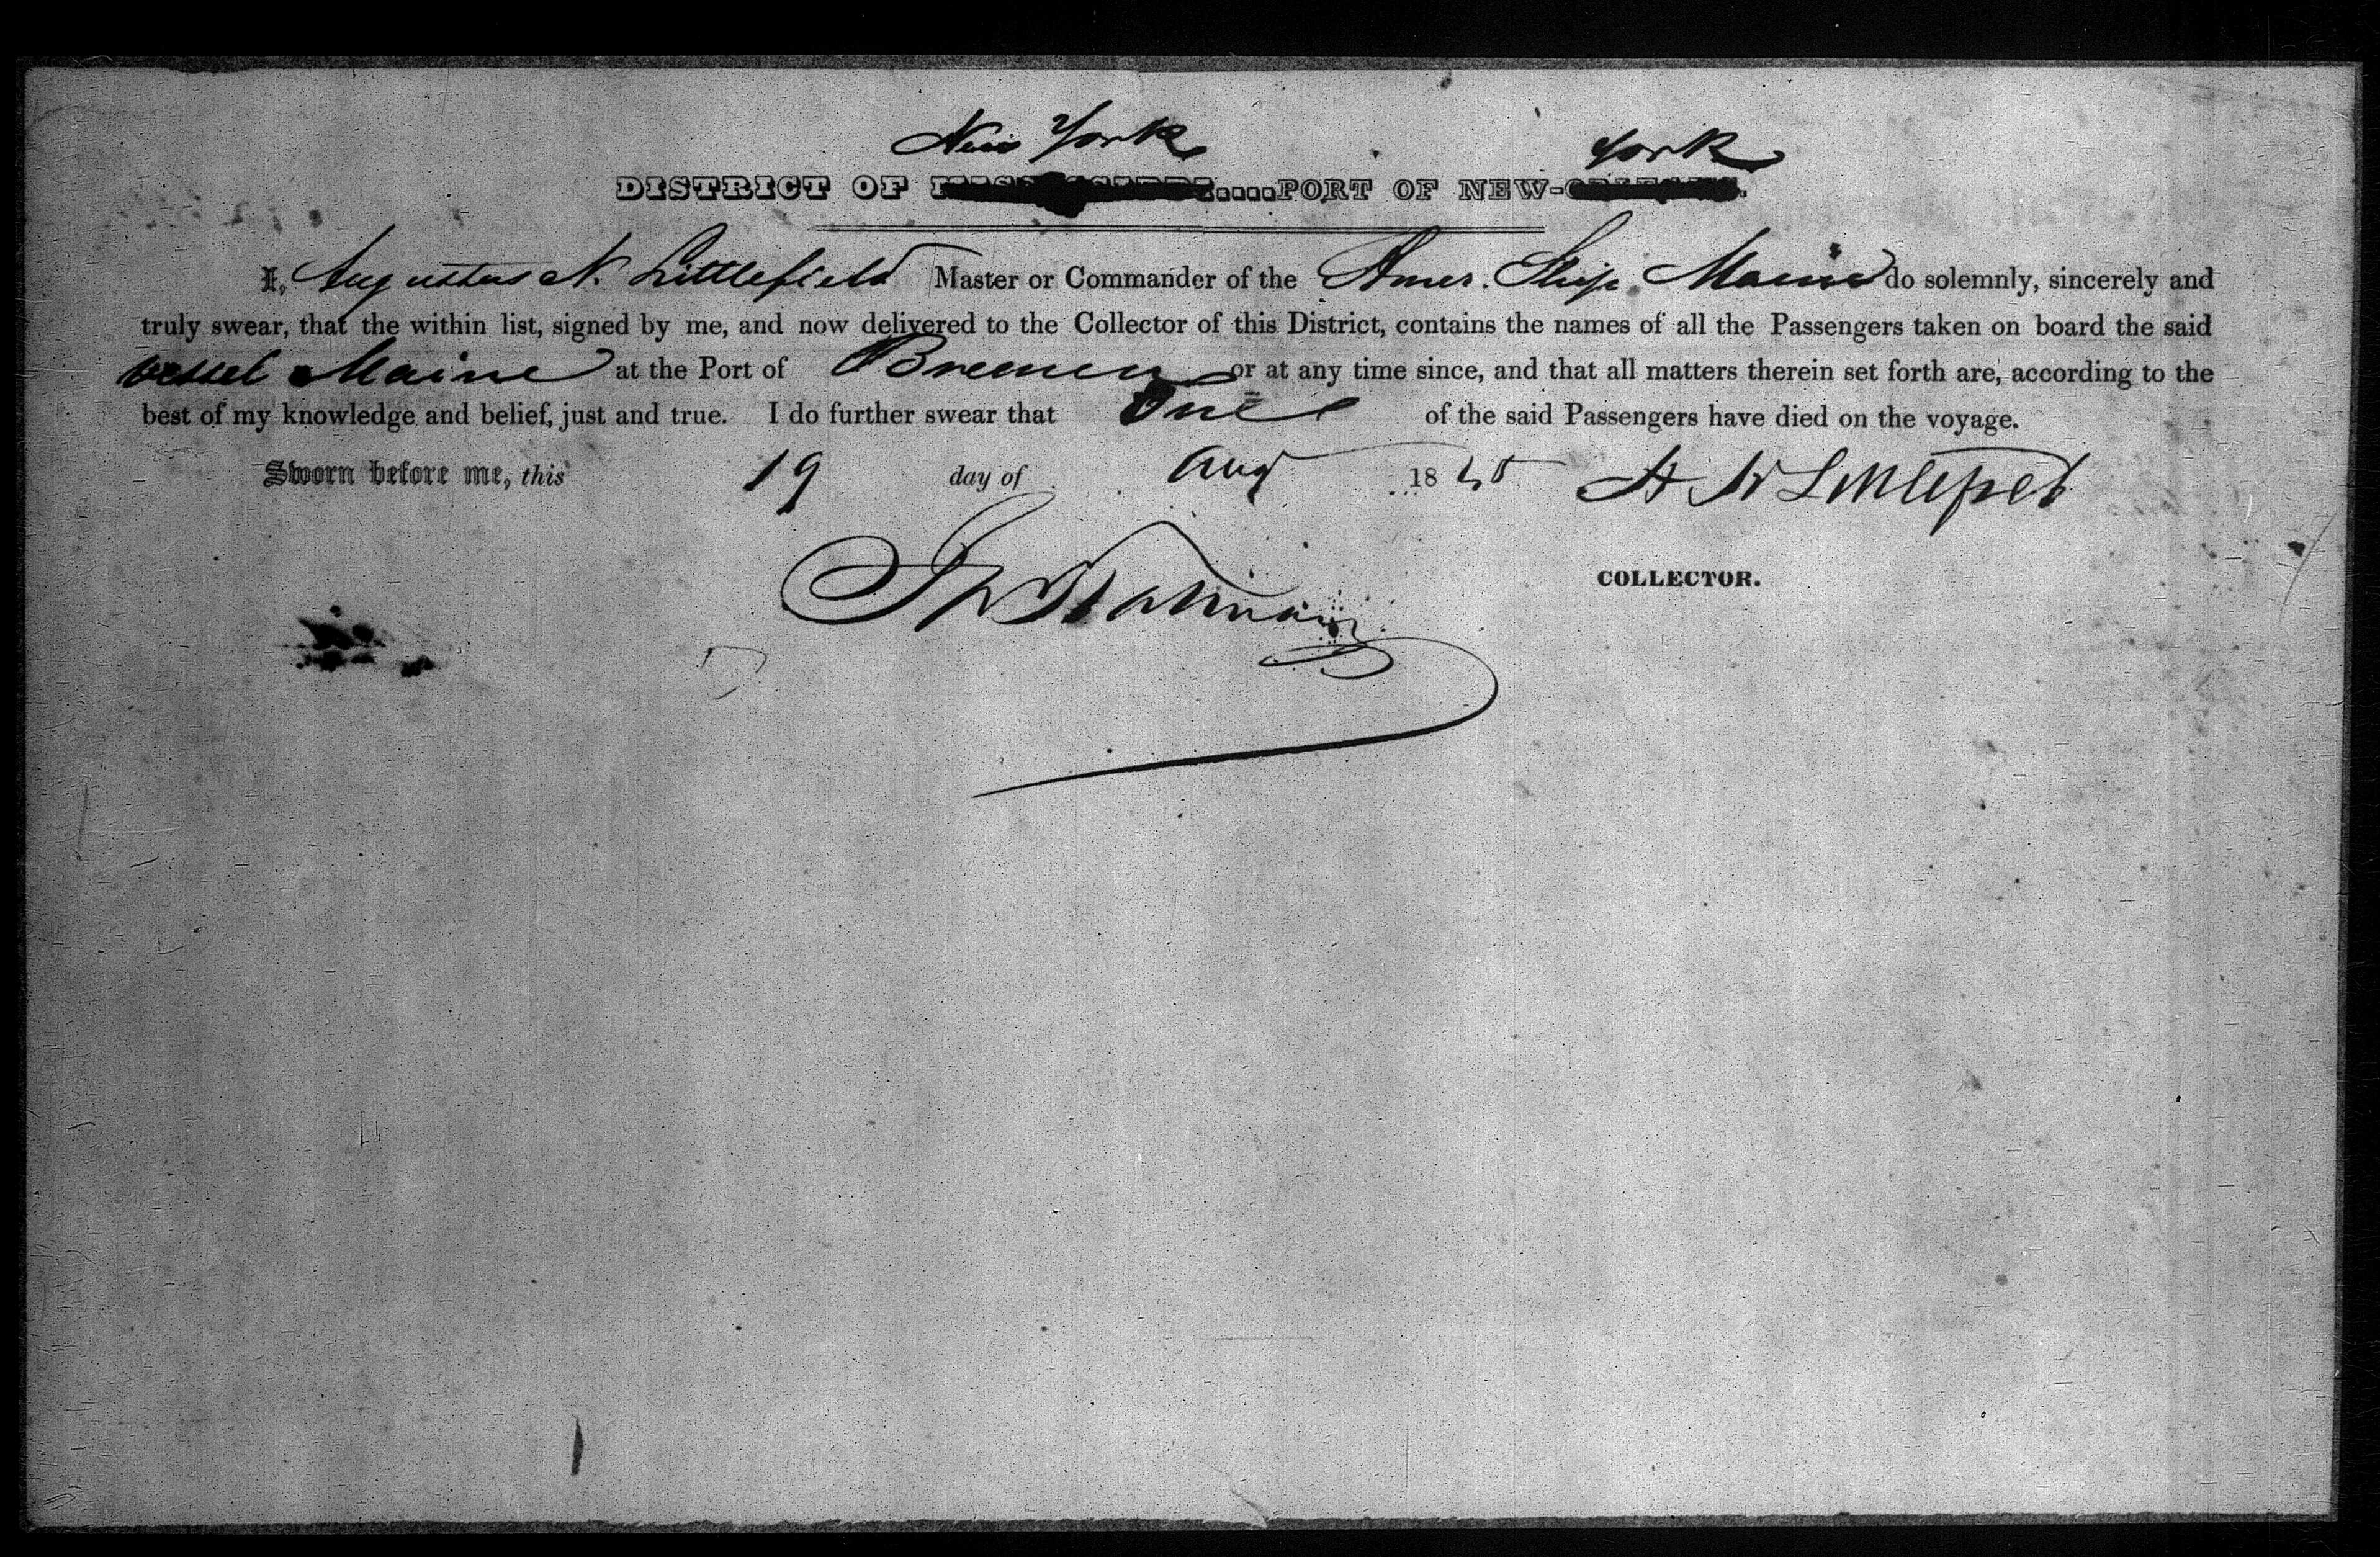 New York York
DISTRICT OF MISSISSIPPI....PORT OF NEW-ORLEANS.
I, Augustus N. Littlefield Master or Commander of the Amer. Ship Maine do solemnly, sincerely and
truly swear, that the within list, signed by me, and now delivered to the Collector of this District, contains the names of all the Passengers taken on board the said
vessel Maine at the Port of Bremen or at any time since, and that all matters therein set forth are, according to the
best of my knowledge and belief, just and true. I do further swear that One of the said Passengers have died on the voyage.
Sworn before me, this 19 day of Aug 18 A N Littlefield
COLLECTOR.